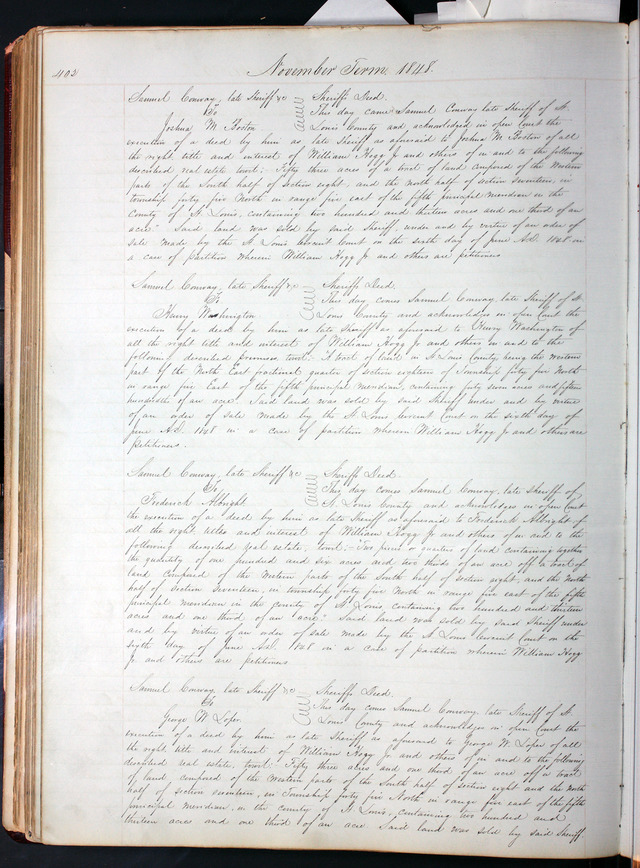 402 November Term 1848.
Samuel Conway, late Sheriff &c Sheriffs Deed.
To This day came Samuel Conway late Sheriff of St.
Joshua M. Boston Louis County and acknowledged in open Court the
execution of a deed by him as late Sheriff as aforesaid to Joshua M. Boston of all
the right, title and interest of William Hogg Jr and others of in and to the following
described real estate towit: Fifty three acres of a tract of land composed of the Western
parts of the South half of section eight, and the North half of section seventeen, in
township forty five North in range five east of the fifth principal meridian in the
County of St. Louis, containing two hundred and thirteen acres and one third of an
acre. Said land was sold by said Sheriff, under and by virtue of an order of
sale made by the St. Louis Circuit Court on the sixth day of June A.D. 1848 in
a case of partition wherein William Hogg Jr and others are petitioners
Samuel Conway, late Sheriff &c Sheriffs Deed.
To This day comes Samuel Conway, late Sheriff of St.
Henry Washington Louis County and acknowledges in open Court the
execution of a deed by him as late Sheriff as aforesaid to Henry Washington of
all the right title and interest of William Hogg Jr and others in and to the
following described premises, towit: A tract of land in St Louis County, being the western
part of the North East fractional quarter of section eighteen of Township forty five North
in range five East of the fifth principal meridian, containing forty seven acres and fifteen
hundredth of an acre. Said land was sold by said Sheriff under and by virtue
of an order of sale made by the St. Louis Circuit Court on the sixth day of
June A.D. 1848 in a case of partition wherein William Hogg Jr and others are
petitioners.
Samuel Conway, late Sheriff &c Sheriffs Deed.
To This day comes Samuel Conway, late Sheriff of
Frederick Albright St. Louis County and acknowledges in open Court
the execution of a deed by him as late Sheriff as aforesaid to Frederick Albright of
all the right, titles and interest of William Hogg Jr and others of in and to the
following described real estate, towit:- Two pieces or quarters of land containing together
the quantity of one hundred and six acres and two thirds of an acre off a tract of
land composed of the Western parts of the South half of section eight, and the North
half of Section Seventeen, in township forty five North in range five east of the fifth
principal meridian in the county of St. Louis, containing two hundred and thirteen
acres and one third of an acre. Said land was sold by said Sheriff under
and by virtue of an order of sale made by the St Louis Circuit Court on the
sixth day of June A.D. 1848 in a case of partition wherein William Hogg
Jr and others are petitioners
Samuel Conway, late Sheriff &c Sheriffs Deed.
To This day comes Samuel Conway, late Sheriff of St.
George W. Loper Louis County and acknowledges in open Court the
execution of a deed by him as late Sheriff as aforesaid to George W. Loper of all
the right title and interest of William Hogg Jr and others of in and to the following
described real estate, towit: Fifty three acres and one third of an acre off a tract
of land, composed of the Western parts of the South half of section eight and the North
half of section seventeen, in Township forty five North in range five east of the fifth
principal meridian, in the county of St. Louis, containing two hundred and
thirteen acres and one third of an acre. Said land was sold by said Sheriff